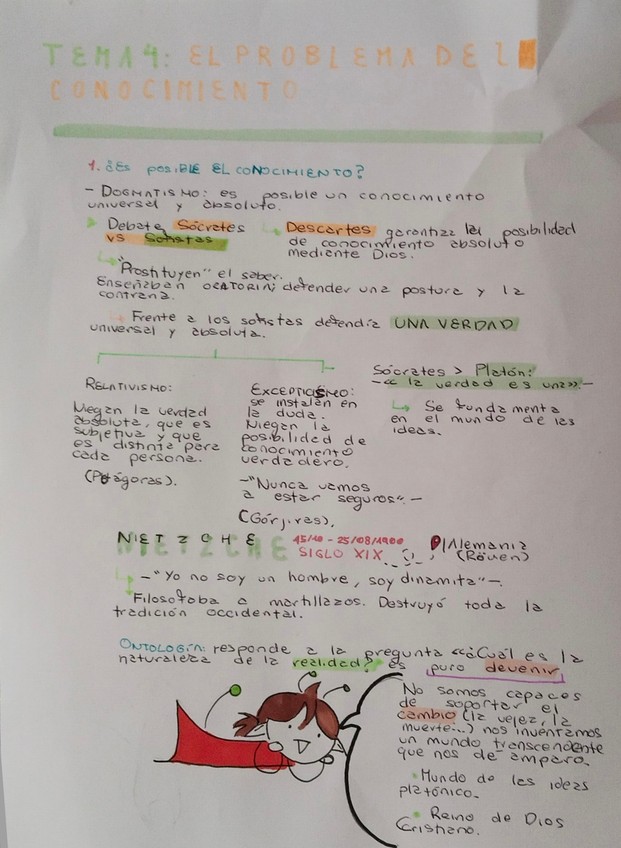 TEMA 4: EL PROBLEMA DE L
CONOCIMIENTO
1. ¿Es posible el conocimiento?
- Dogmatismo: es posible un conocimiento
universal y absoluto.
Debate Sócrates
vs Sofistas
Descartes garantiza la posibilidad
de conocimiento absoluto
mediante Dios.
"Prostituyen" el saber.
Enseñaban ORATORIA; defender una postura y la
contraria.
Frente a los sofistas defendía UNA VERDAD
universal y absoluta.
Relativismo:
Niegan la verdad
absoluta, que es
subjetiva y que
es distinta para
cada persona.
(Pitágoras).
Excepticismo:
se instalan en
la duda.
Niegan la
posibilidad de
conocimiento
verdadero.
-"Nunca vamos
a estar seguros".-
(Górjiras).
Sócrates > Platón:
-<< la verdad es una>>-
Se fundamenta
en el mundo de las
ideas.
NIETZCHE
15/10 - 25/08/1900
SIGLO XIX
Alemania
(Röven)
-"Yo no soy un hombre, soy dinamita"-.
Filosofaba a martillazos. Destruyó toda la
tradición occidental.
Ontología: responde a la pregunta <<¿Cuál es la
naturaleza de la realidad? es puro devenir
No somos capaces
de soportar el
cambio (la vejez, la
muerte...) nos inventamos
un mundo transcendente
que nos de amparo.
• Mundo de las ideas
platónico.
• Reino de Dios
Cristiano.